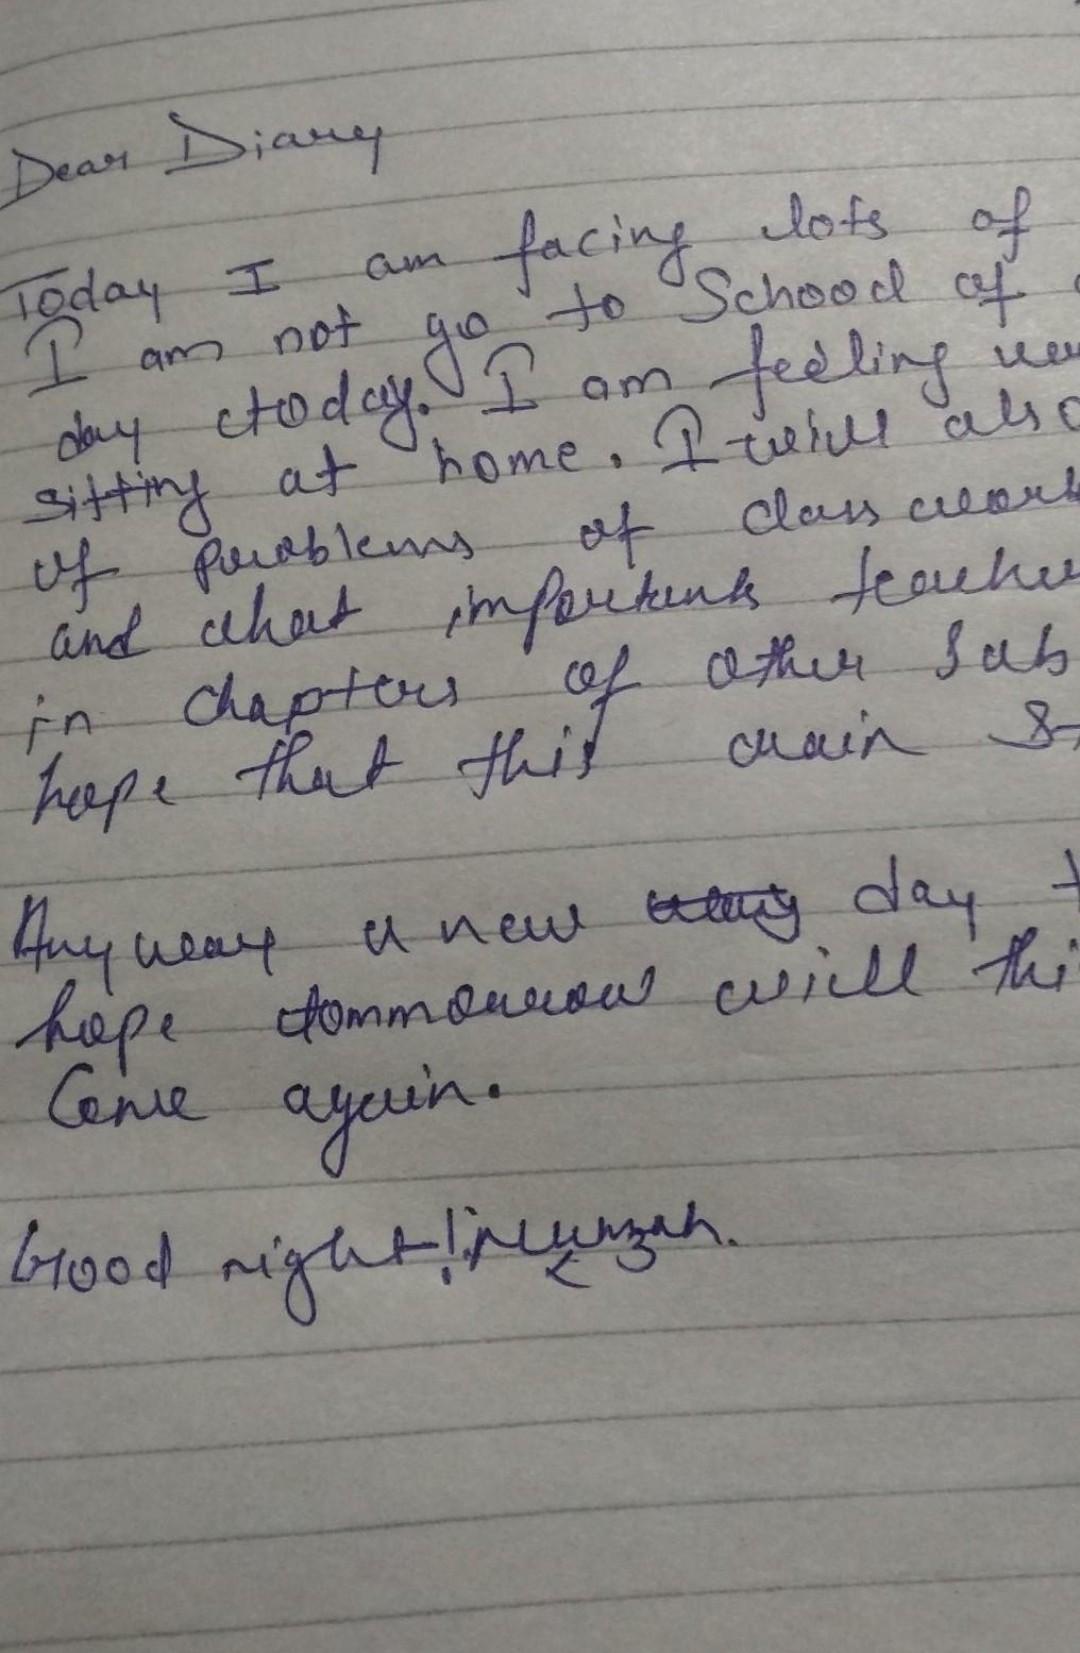 Dear Diary
Today I am facing lots of
I am not go to School of
day today. I am feeling
sitting at home. I will also
of problems of class work
and what important
in chapters of other Sub
hope that this rain
Anyway a new day
hope tommorrow will thi
Come again.
Good night!